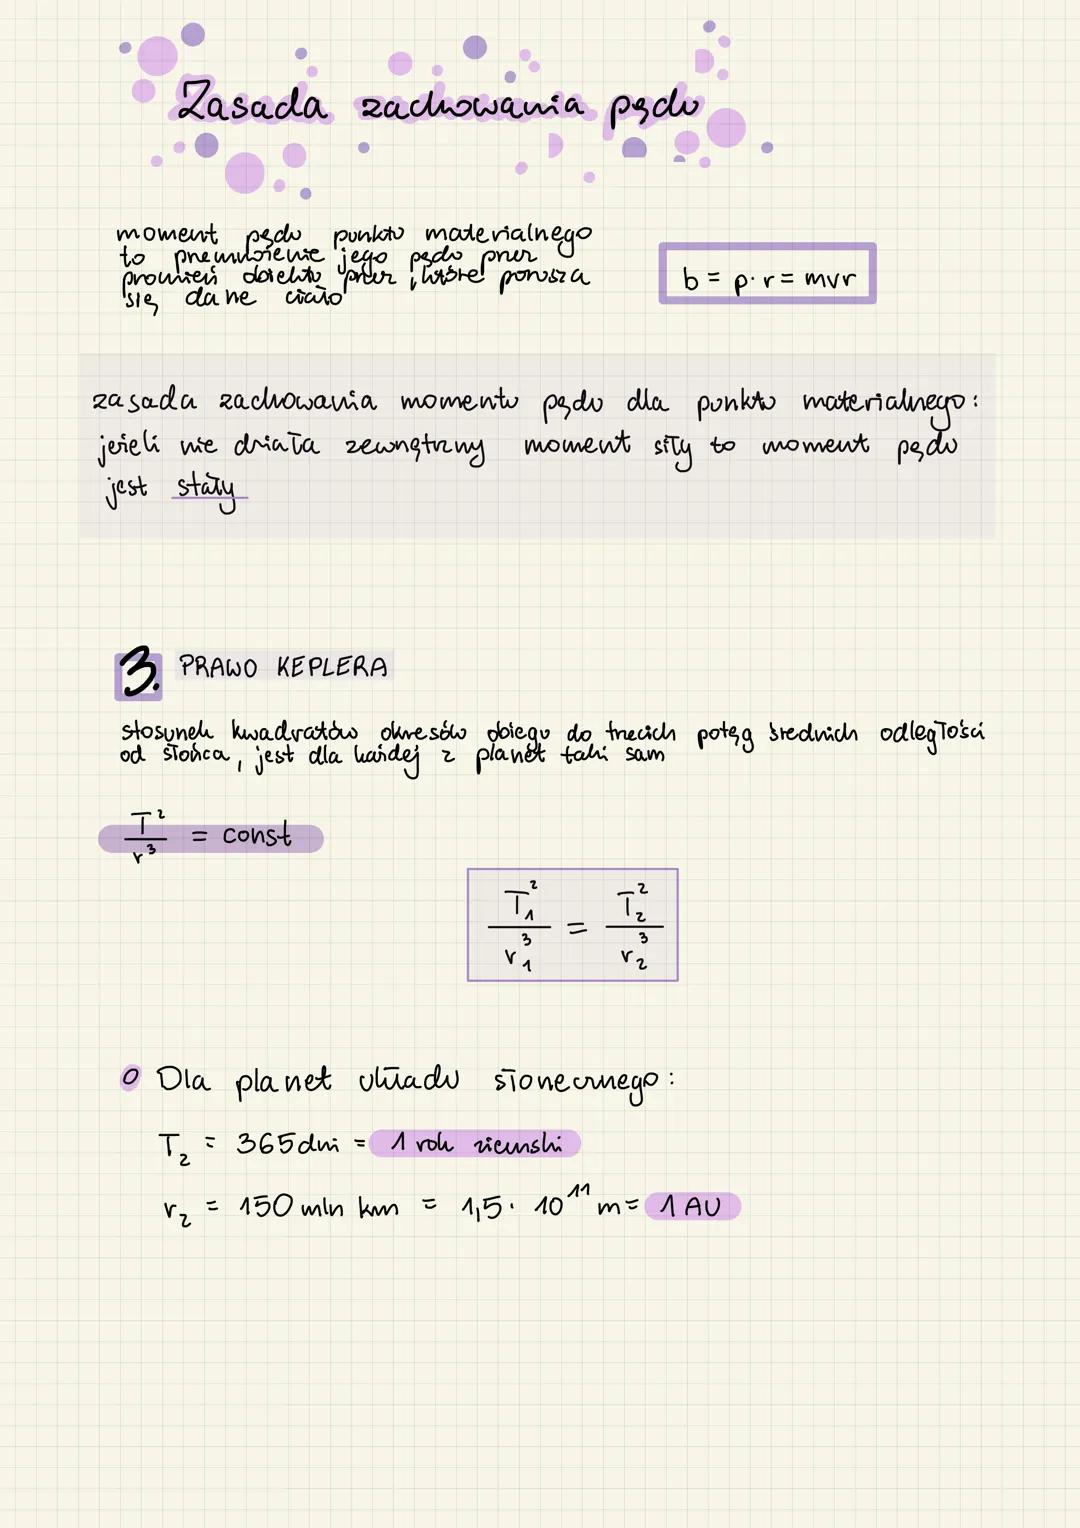 Zasada zachowania pędu
moment pędu punktu materialnego
to przemnożenie jego pędu przez
promień obiektu przez, które porusza
się dane ciało
b = p · r = mvr
zasada zachowania momentu pędu dla punktu materialnego:
jeżeli nie działa zewnętrzny moment siły to moment pędu
jest stały
3. PRAWO KEPLERA
stosunek kwadratów okresów obiegu do trzecich potęg średnich odległości
od słońca, jest dla każdej z planet taki sam
T²/r³ = const
T₁²/r₁³ = T₂²/r₂³
o Dla planet układu słonecznego:
T₂ = 365 dni = 1 rok ziemski
r₂ = 150 mln km = 1,5 · 10¹¹ m = 1 AU